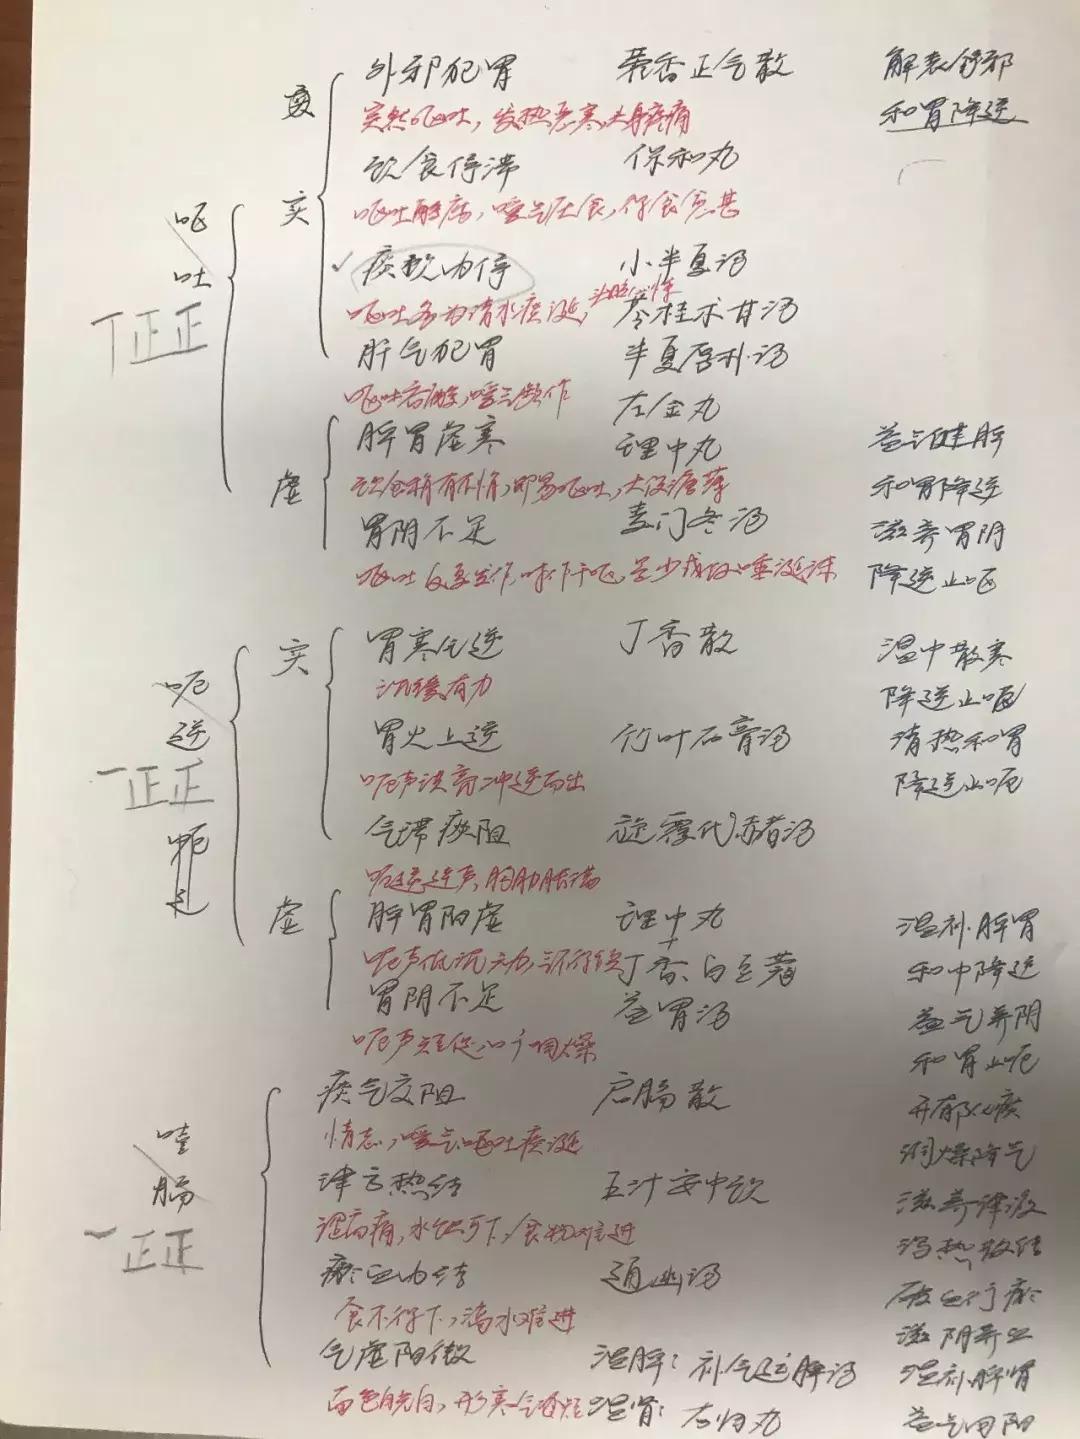 外邪犯胃 藿香正气散 解表舒邪
突然呕吐，发热恶寒，头身疼痛 和胃降逆
实
饮食停滞 保和丸
呕吐酸腐，嗳气厌食，得食愈甚
呕吐
丁正正
痰饮内停 小半夏汤
呕吐多为清水痰涎，头眩心悸 苓桂术甘汤
肝气犯胃 半夏厚朴汤
呕吐吞酸，嗳气频作 左金丸
虚
脾胃虚寒 理中丸 益气健脾
饮食稍有不慎，即易呕吐，大便溏薄 和胃降逆
胃阴不足 麦门冬汤 滋养胃阴
呕吐反复发作，时作干呕，呈少或仅唾涎沫 降逆止呕
实
胃寒气逆 丁香散 温中散寒
沉缓有力 降逆止呃
呃逆
一正正
胃火上逆 竹叶石膏汤 清热和胃
呃声洪亮冲逆而出 降逆止呃
气滞痰阻 旋覆代赭汤
呃逆连声，胸胁胀满
虚
脾胃阳虚 理中丸 温补脾胃
呃声低沉无力，气不得续 + 丁香、白豆蔻 和中降逆
胃阴不足 益胃汤 益气养阴
呃声短促，口干咽燥 和胃止呃
噎膈
一正正
痰气交阻 启膈散 开郁化痰
情志，嗳气呕吐痰涎 润燥降气
津亏热结 五汁安中饮 滋养津液
涩而痛，水饮可下，食物难进 泻热散结
瘀血内结 通幽汤 破血行瘀
食不得下，滴水难进 滋阴养血
气虚阳微 温脾：补气运脾汤 温补脾肾
面色㿠白，形寒气短 温肾：右归丸 益气回阳